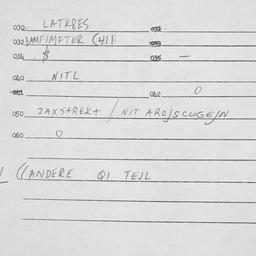 030 LATKRES 
032 LAMFIMFTER (411
034 $ 035 —
040 NITL
042 0
050 ZAXSTREKT / NIT ARO/SCUGE/N
060 0
((ANDERE QI TEJL